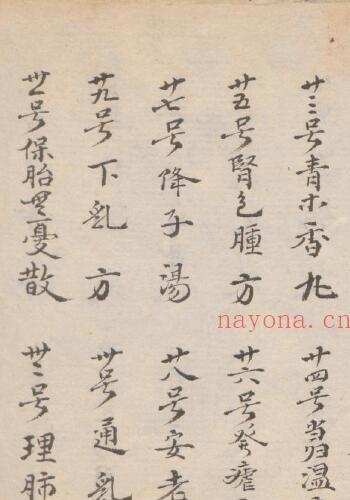 廿三号青木香丸
廿四号当归温
廿五号腎包腫方
廿六号發瘧
廿七号降子湯
廿八号安老
廿九号下乳方
卅号通乳
卅一号保胎無憂散
卅二号理肺
nayona.cn